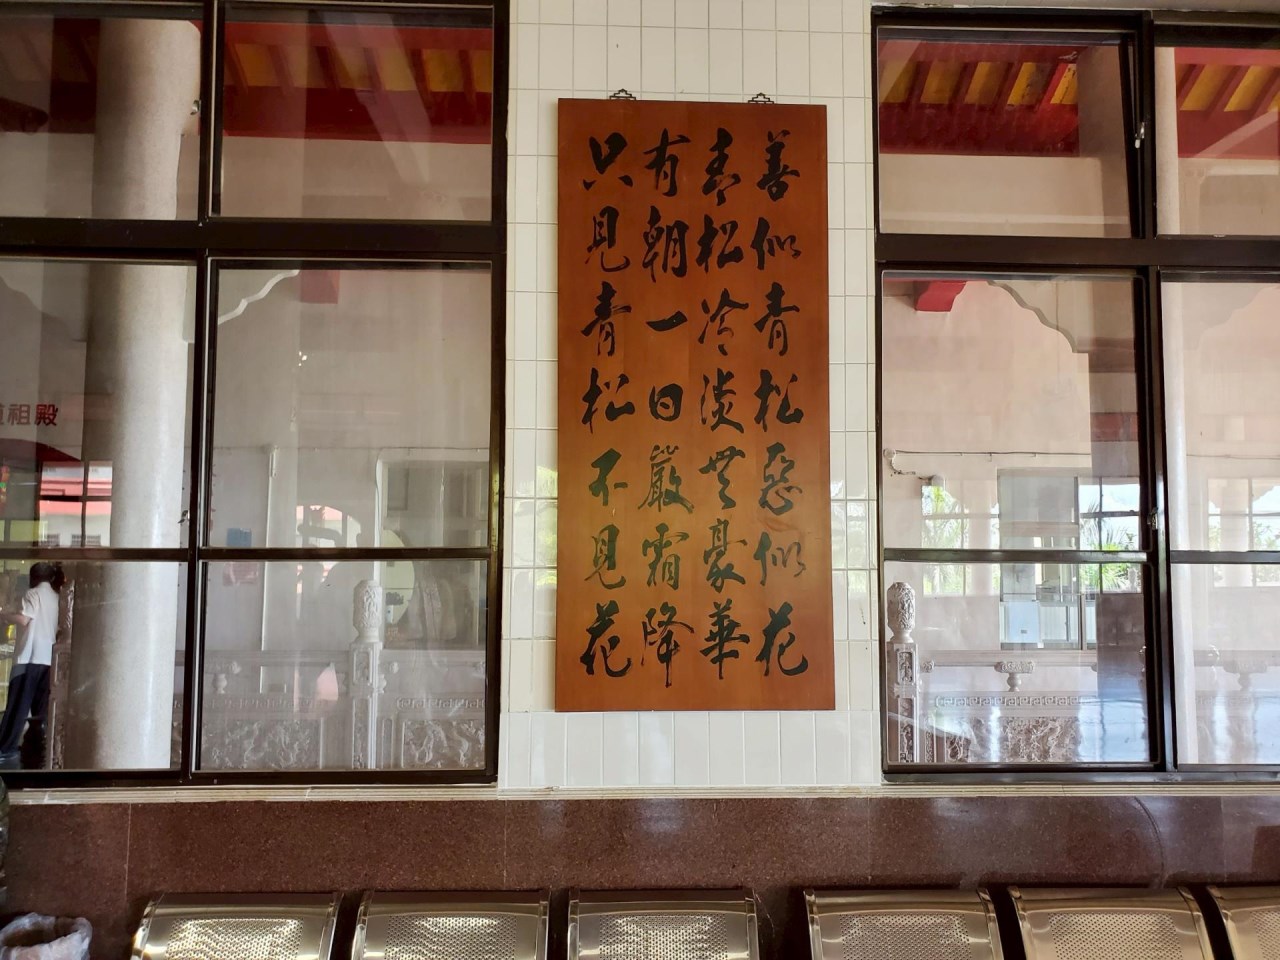 善似青松惡似花
青松冷淡無豪華
有朝一日嚴霜降
只見青松不見花
祖殿